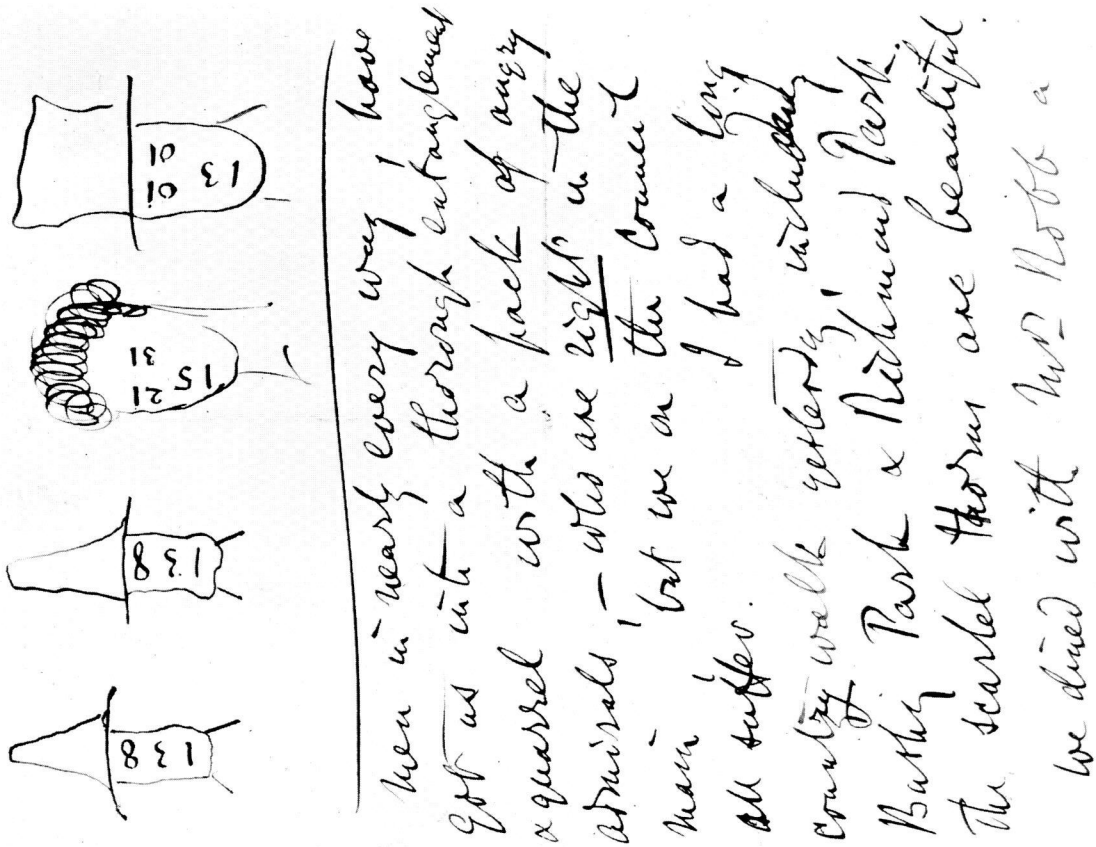 138
138
15
21
31
13
10
10
men in nearly every way I have
got us into a thorough entanglement
& quarrel with a pack of angry
admirals – who are right in the
main but we on the Council
all suffer. I had a long
country walk yesterday including
Bushy Park & Richmond Park.
The scarlet thorns are beautiful.
we dined with Mrs Robb a